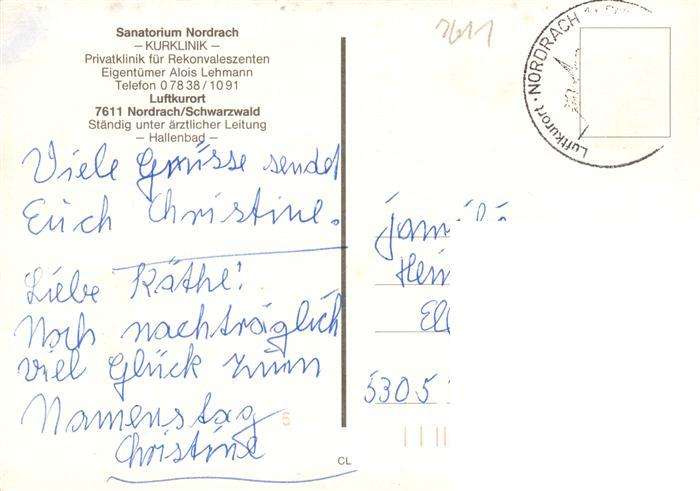 Sanatorium Nordrach
— KURKLINIK —
Privatklinik für Rekonvaleszenten
Eigentümer Alois Lehmann
Telefon 0 78 38 / 10 91
Luftkurort
7611 Nordrach/Schwarzwald
Ständig unter ärztlicher Leitung
— Hallenbad —
Viele Grüsse sendet
Euch Christine.
Liebe Käthe!
Noch nachträglich
viel Glück zum
Namenstag
Christine
CL
7611
Luftkurort · NORDRACH
5305